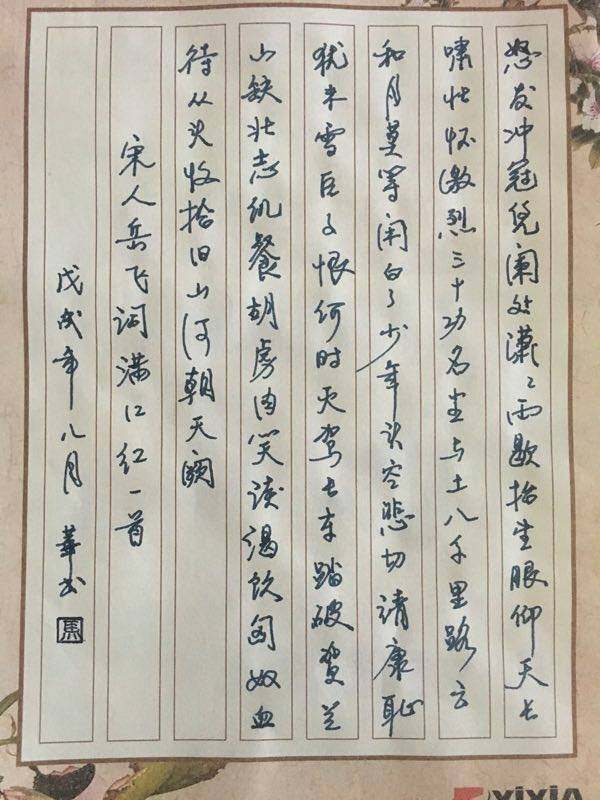 怒发冲冠凭阑处潇〻雨歇抬望眼仰天长
啸壮怀激烈三十功名尘与土八千里路云
和月莫等闲白了少年头空悲切靖康耻
犹未雪臣子恨何时灭驾长车踏破贺兰
山缺壮志饥餐胡虏肉笑谈渴饮匈奴血
待从头收拾旧山河朝天阙
宋人岳飞词满江红一首
戊戌年八月 華书 馬